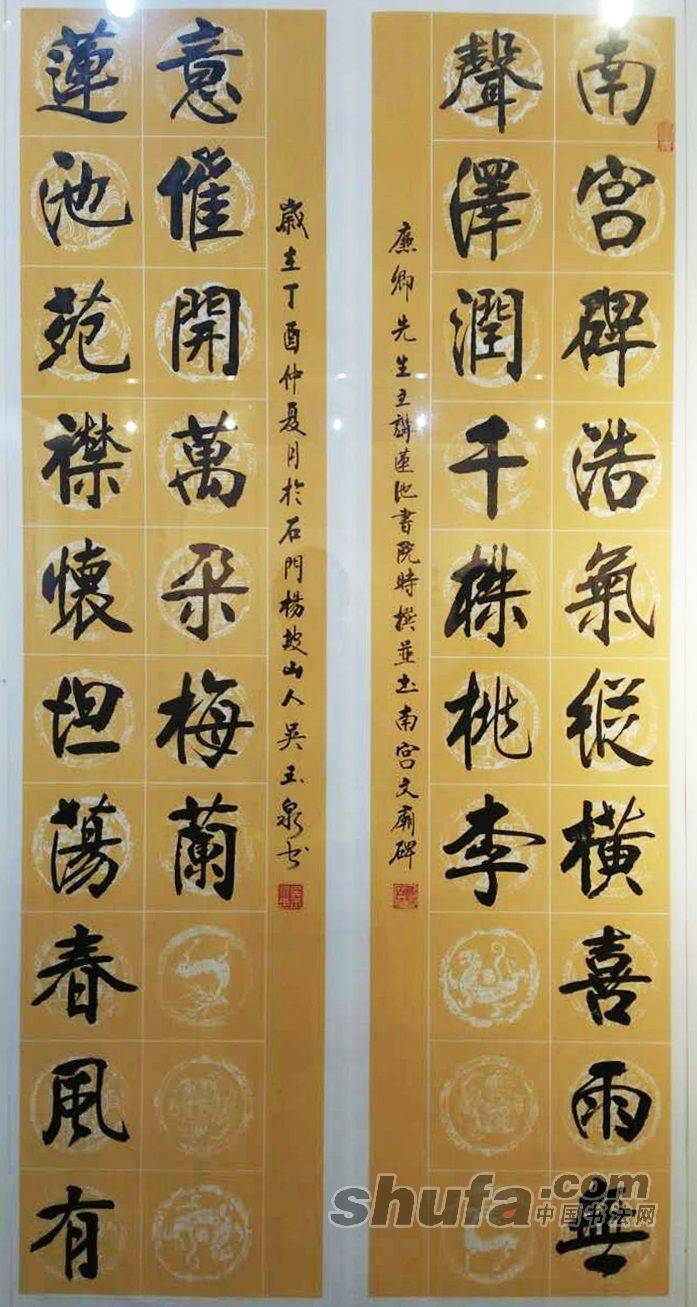 南宮碑浩氣縱橫喜雨無
聲澤潤千株桃李
廉卿先生主講蓮池書院時撰並書南宮文廟碑
蓮池苑襟懷坦蕩春風有
意催開萬朵梅蘭
歲在丁酉仲夏月於石門楊坡山人吴玉泉書
shufa.com
中国书法网